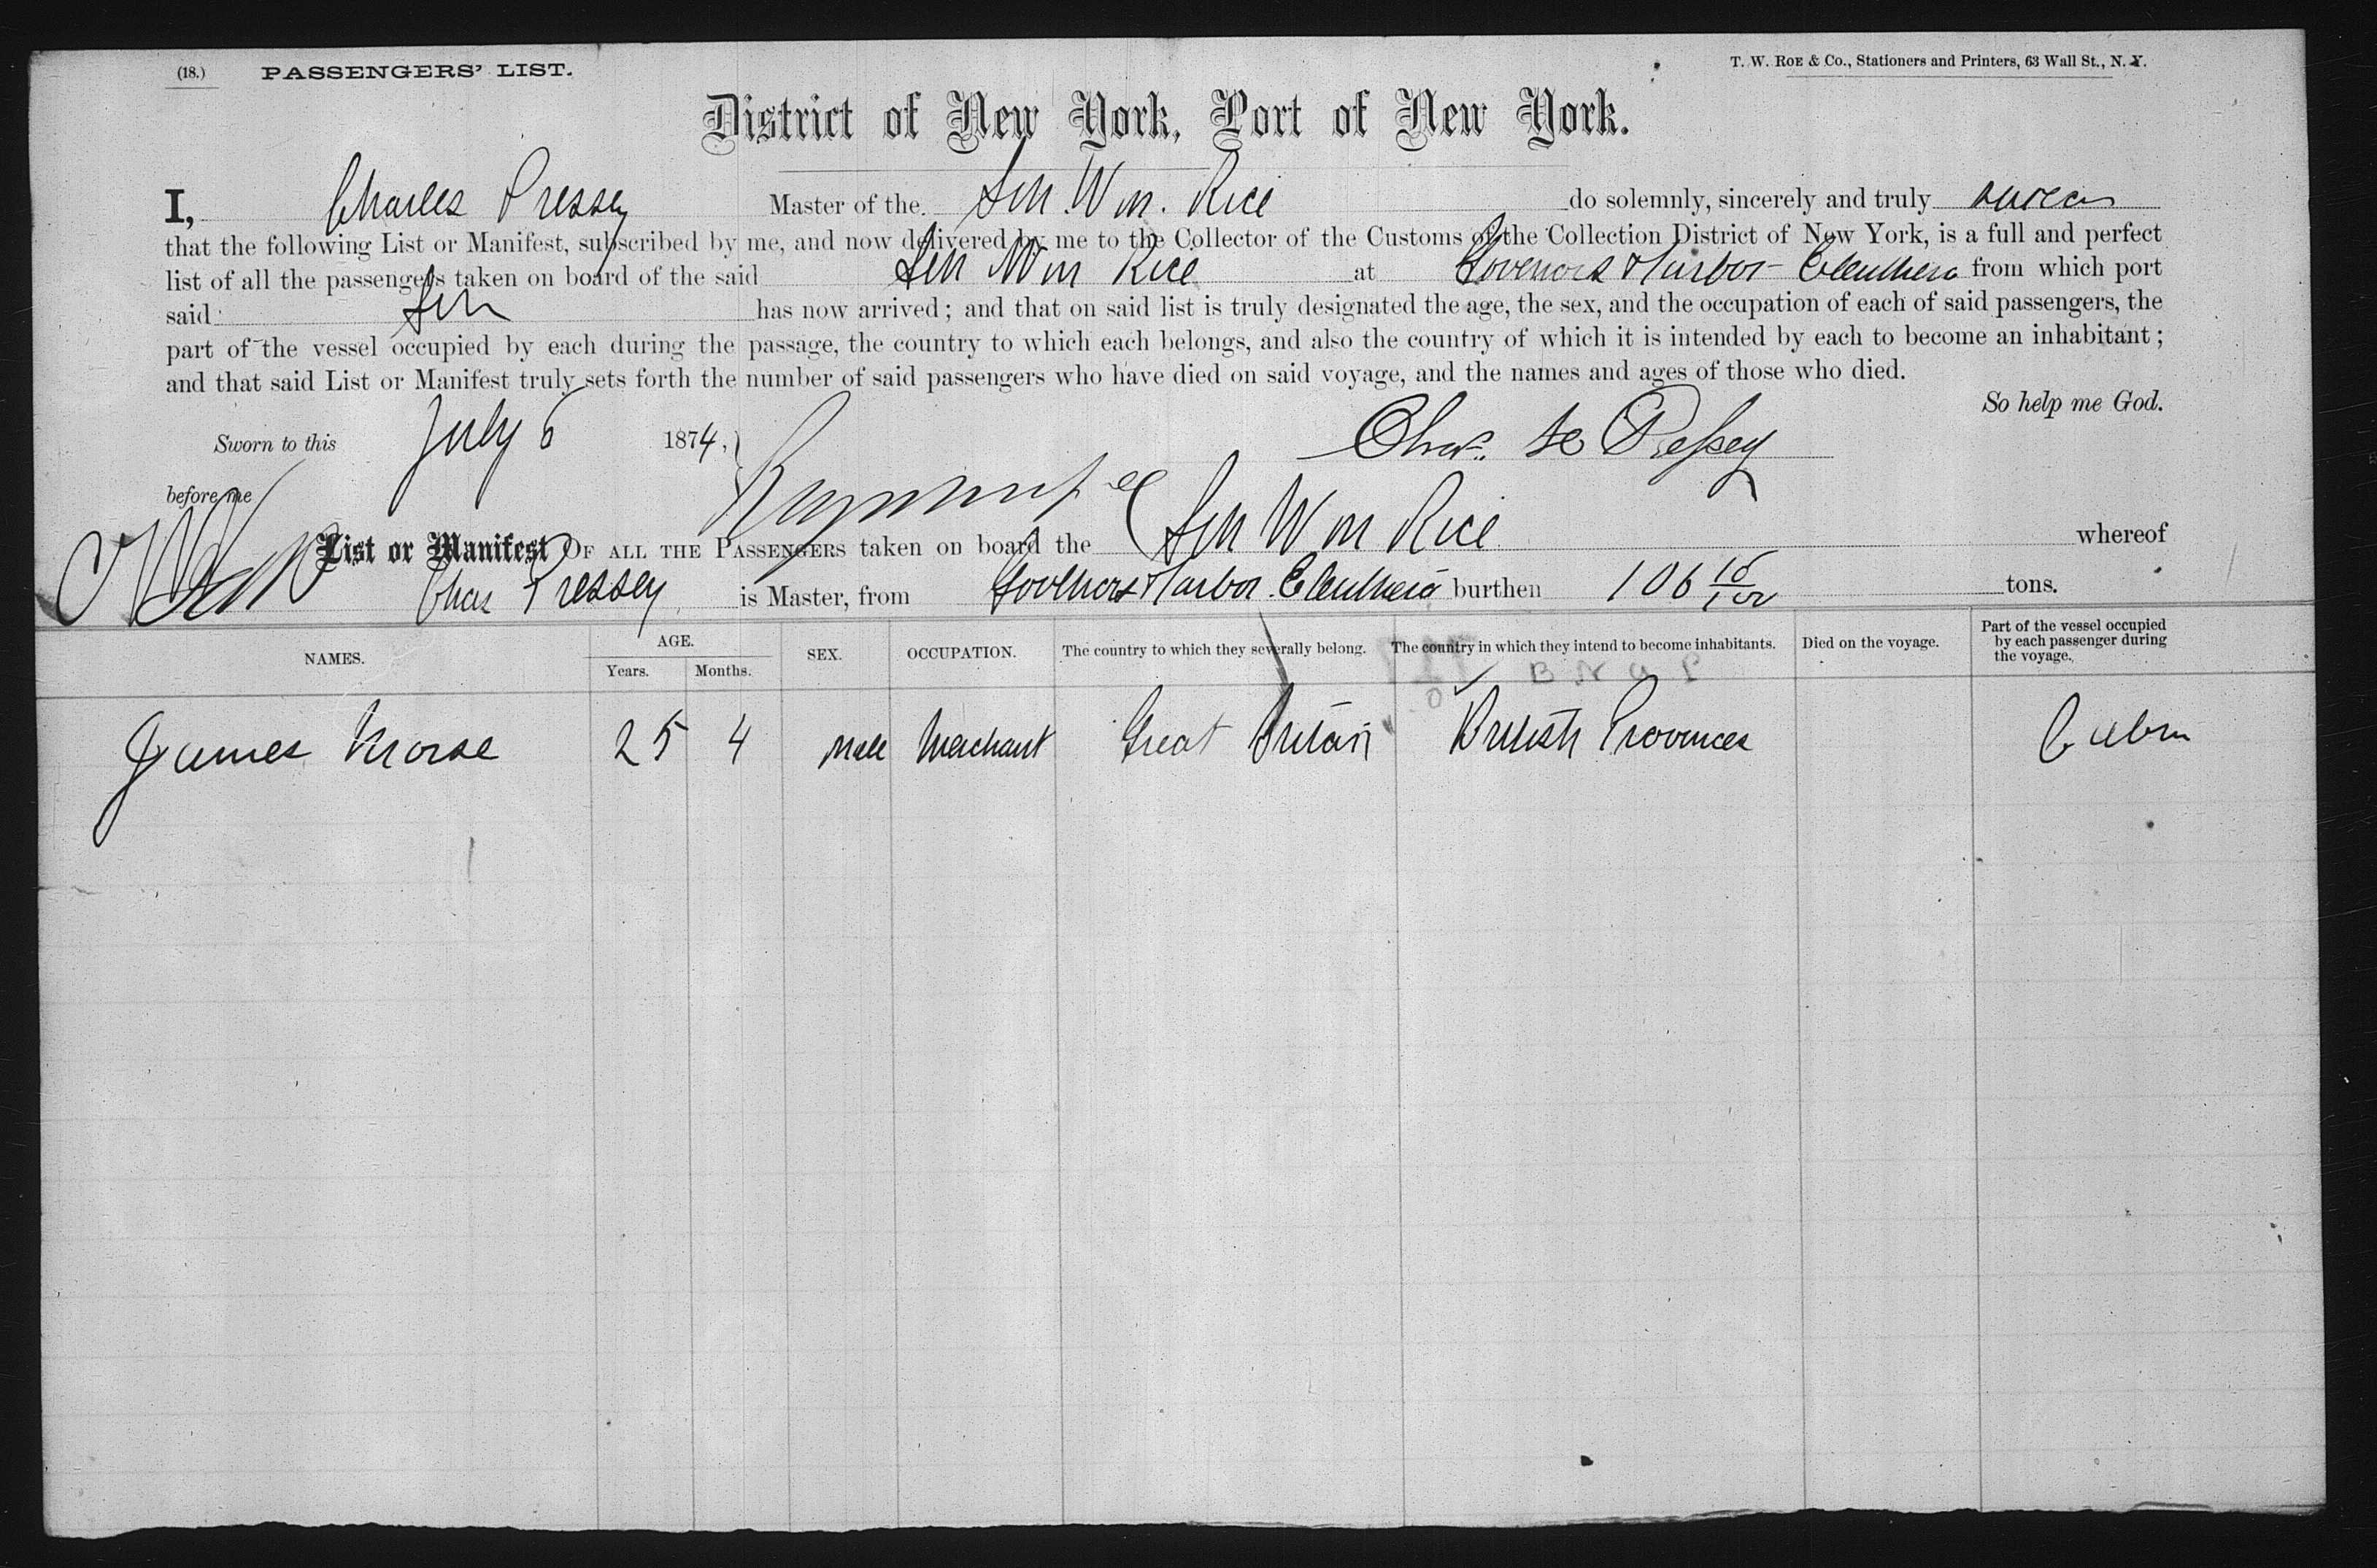 (18.) PASSENGERS' LIST.
T. W. ROE & Co., Stationers and Printers, 63 Wall St., N. Y.
District of New York, Port of New York.
I, Charles Pressey Master of the Sch. Wm. Rice do solemnly, sincerely and truly swear
that the following List or Manifest, subscribed by me, and now delivered by me to the Collector of the Customs of the Collection District of New York, is a full and perfect
list of all the passengers taken on board of the said Sch Wm Rice at Govenors Harbor Eleuthera from which port
said Sch has now arrived; and that on said list is truly designated the age, the sex, and the occupation of each of said passengers, the
part of the vessel occupied by each during the passage, the country to which each belongs, and also the country of which it is intended by each to become an inhabitant;
and that said List or Manifest truly sets forth the number of said passengers who have died on said voyage, and the names and ages of those who died.
So help me God.
Sworn to this July 6 1874, Chas. Pressey
before me
List or Manifest OF ALL THE PASSENGERS taken on board the Sch Wm Rice whereof
Chas Pressey is Master, from Govenors Harbor Eleuthera burthen 106 tons.
NAMES. AGE. Years. Months. SEX. OCCUPATION. The country to which they severally belong. The country in which they intend to become inhabitants. Died on the voyage. Part of the vessel occupied by each passenger during the voyage.
B N A P
James Morse 25 4 Male Merchant Great Britain British Provinces Cabin